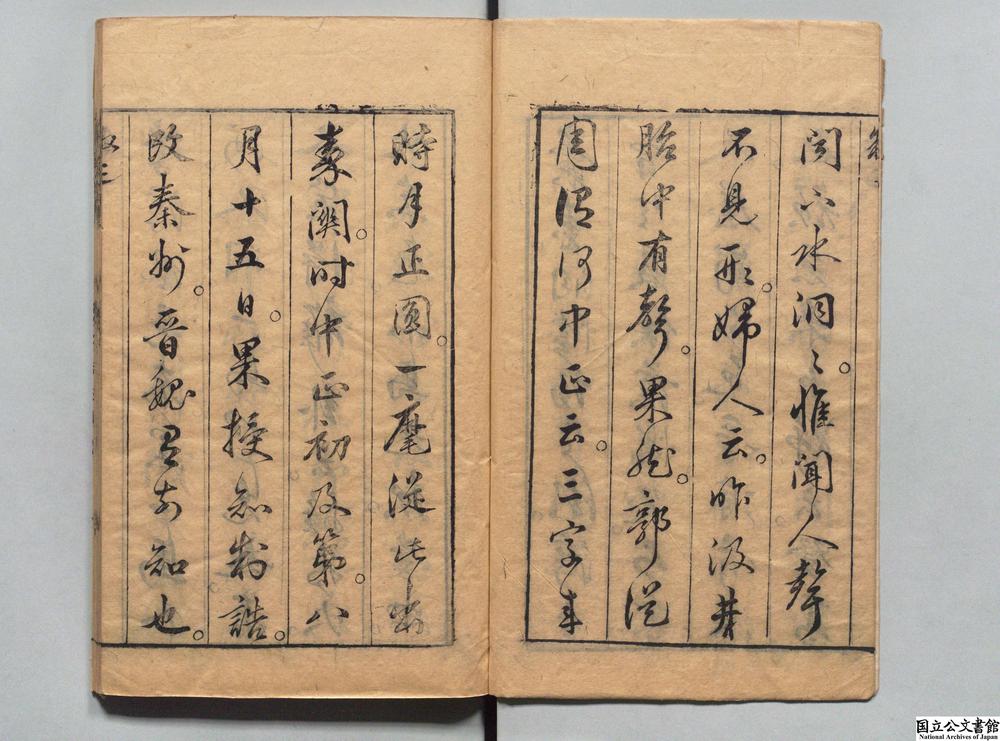 下水洞〻。惟聞人聲
不見形。婦人云。昨汲井
胎中有聲。果然。郭從
周謂何中正云。三字来
時月正圓。一麾從此出
秦關。时中正初及第。八
月十五日。果授知制誥。
改秦州。晋魏前知也。
国立公文書館
National Archives of Japan